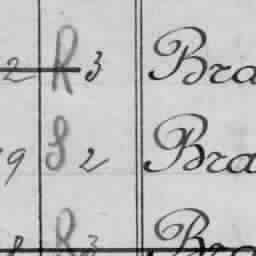 2 R 3 Bra
9 S 2 Bra
8 R 3 Bra